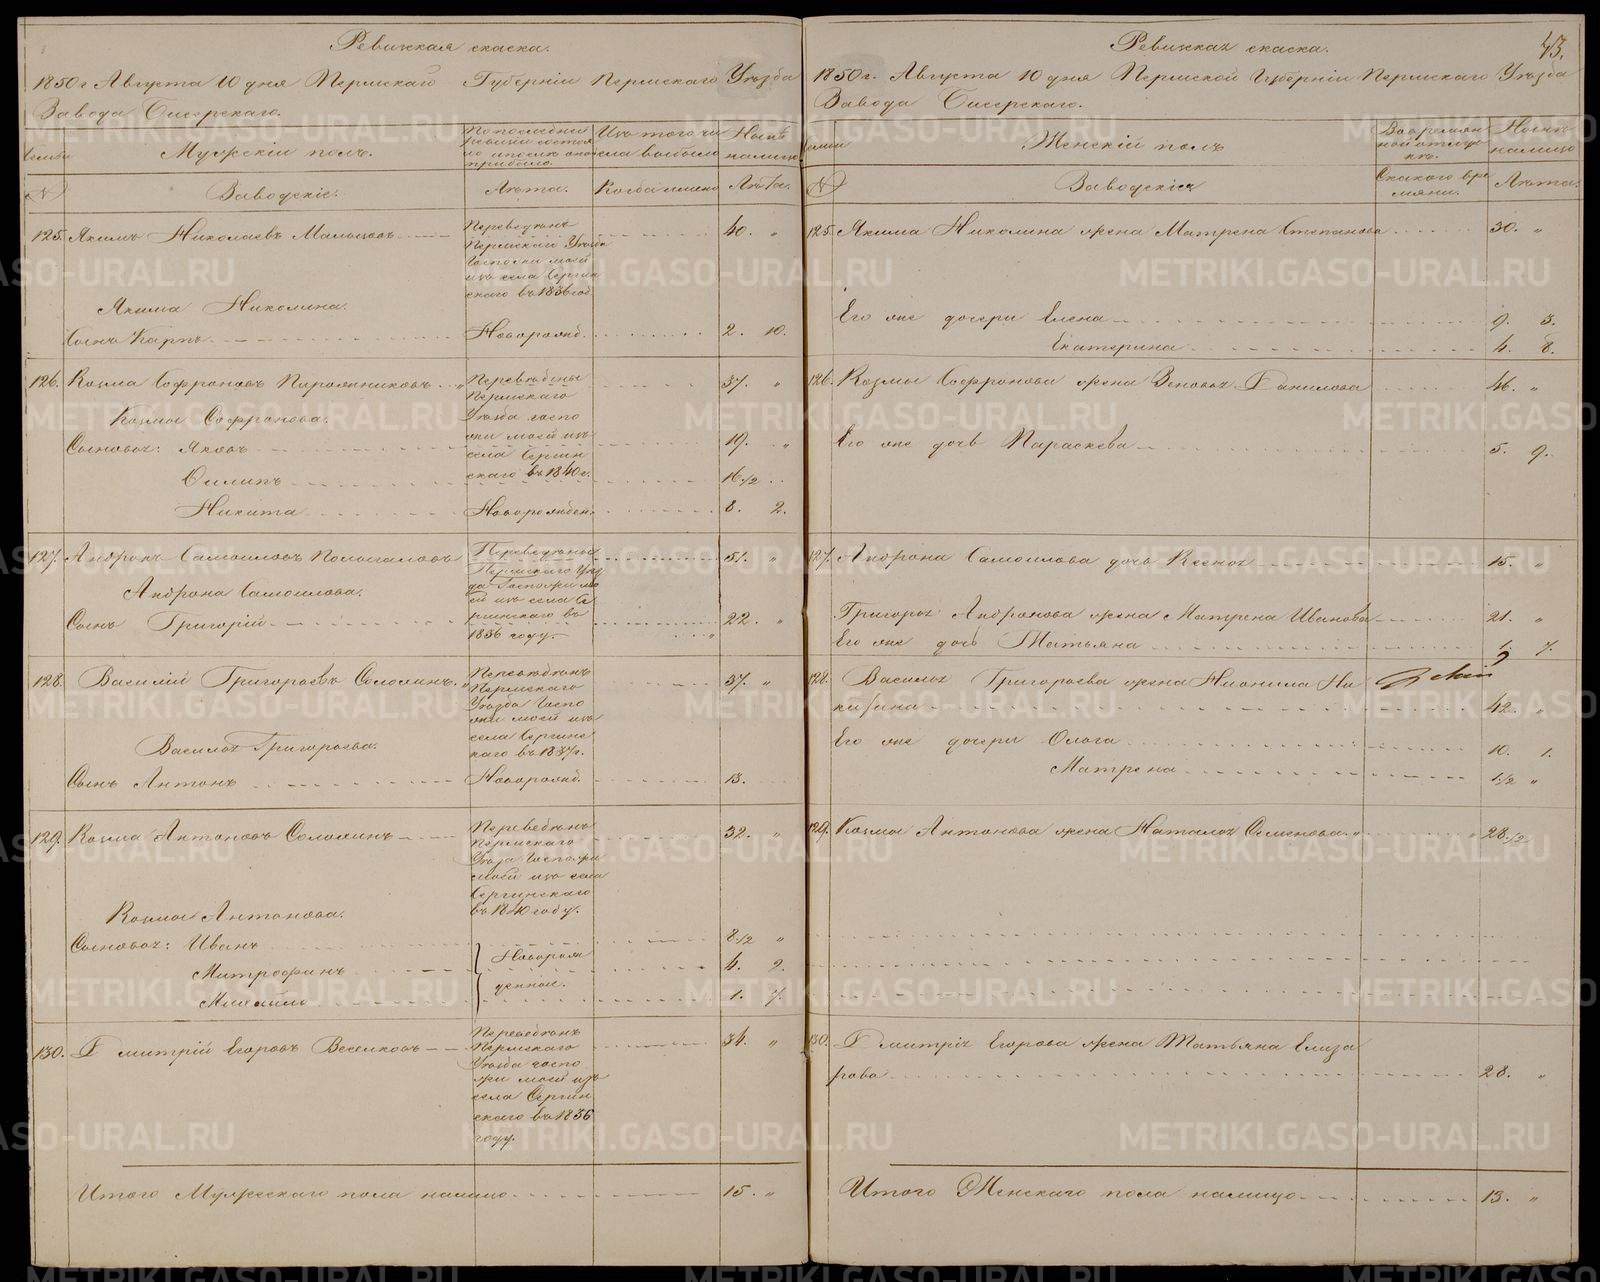 Ревижская скаска.
1850 г Августа 10 дня Пермскай Губерніи Пермскаго Уѣзда
Завода Бисерскаго.
Семьи
Мужскій полъ.
По последней ревизіи состояло и после оной прибыло.
Изъ того числа выбыло
Нынѣ налицо.
№
Заводскіе.
Лѣта.
Когда именно
Лѣта.
125. Якимъ Николаевъ Мальцовъ
Переведенъ
Пермскаго Уѣзда
Госпожи моей
изъ села Сергин
скаго въ 1836 год
40. "
Якима Николина.
Сынъ Карпъ
Новорожд.
2. 10.
126. Козма Софроновъ Пирожниковъ
Переведены
Пермскаго
Уѣзда госпо
жи моей изъ
села Сергин
скаго въ 1840 г.
37. "
Козмы Софронова.
Сыновья: Яковъ
19. "
Филипъ
16 1/2
Никита
Новорожден.
8. 2.
127. Андронъ Самоиловъ
Переведены
Пермскаго Уѣз
да Госпожи мо
ей изъ села Се
ргинскаго въ
1836 году.
51. "
Андрона Самоилова.
Сынъ Григорій
22. "
128. Василій Григорьевъ Соломинъ.
Переведенъ
Пермскаго
Уѣзда Госпо
жи моей изъ
села Сергинс
каго въ 1837 г.
37. "
Василья Григорьева.
Сынъ Антонъ
Новорожд.
13.
129. Козма Антоновъ Соломинъ
Переведенъ
Пермскаго
Уѣзда Госпожи
моей изъ села
Сергинскаго
въ 1840 году.
32. "
Козмы Антонова.
Сыновья: Иванъ
8 1/2 "
Митрофанъ
Новорож
4. 9.
денные.
Михайло
1. 7.
130. Дмитрій Егоровъ Веселковъ
Переведенъ
Пермскаго
Уѣзда госпо
жи моей изъ
села Сергин
скаго въ 1836
году.
34. "
Итого Мужескаго пола налицо
15. "
43.
Ревижская скаска.
1850 г. Августа 10 дня Пермской Губерніи Пермскаго Уѣзда
Завода Бисерскаго.
Семьи
Женскій полъ
Во времян
ной отлуч
кѣ.
Нынѣ
налицо
№
Заводскія
Съ какого вре
мяни.
Лѣта.
125. Якима Николина жена Матрена Степанова
30. "
Его же дочери Елена
9. 3.
Екатерина
4. 8.
126. Козмы Софронова жена Зеновья Данилова
46. "
Его же дочь Параскева
5. 9.
127. Андрона Самоилова дочь Ксенья
15. "
Григорья Андронова жена Матрена Иванова
21. "
Его же дочь Татьяна
1. 7.
128. Василья Григорьева жена Неонила Ни
китина
42. "
Его же дочери Ольга
10. 1.
Матрена
1 1/2 "
129. Козмы Антонова жена Наталья Семенова
28 1/2
130. Дмитрія Егорова жена Татьяна Елиза
рова
28. "
Итого Женскаго пола налицо
13. "
METRIKI.GASO-URAL.RU